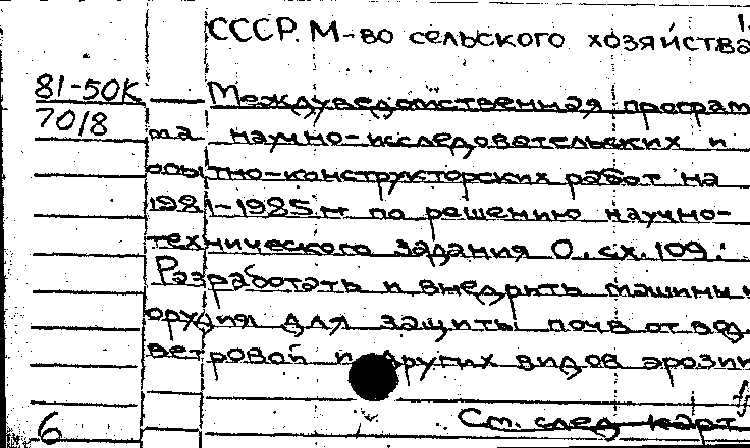 СССР. М-во сельского хозяйства
81-50К
70/8
Междуведомственная програм
ма научно-исследовательских и
опытно-конструкторских работ на
1981-1985 гг по решению научно-
технического задания О.сх.109.:
Разработать и внедрить машины и
орудия для защиты почв от вод
ветровой и других видов эрозии
См. след. карт
6